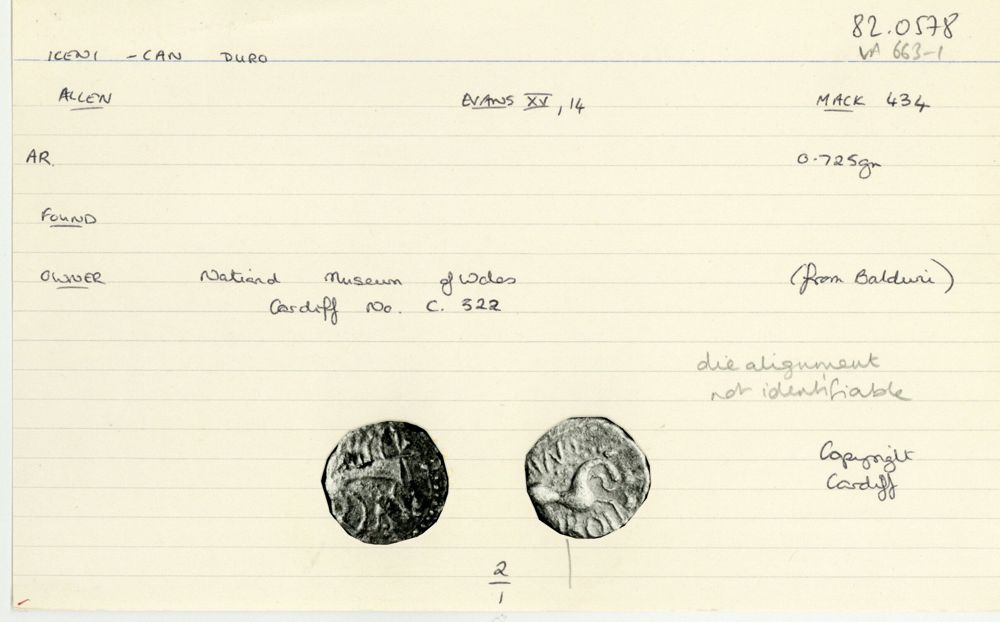 82.0578
VA 663-1
ICENI - CAN DURO
ALLEN EVANS XV, 14 MACK 434
AR. 0.725gm
FOUND
OWNER National Museum of Wales (from Baldwin)
Cardiff No. C. 322
die alignment
not identifiable
Copyright
Cardiff
2
1